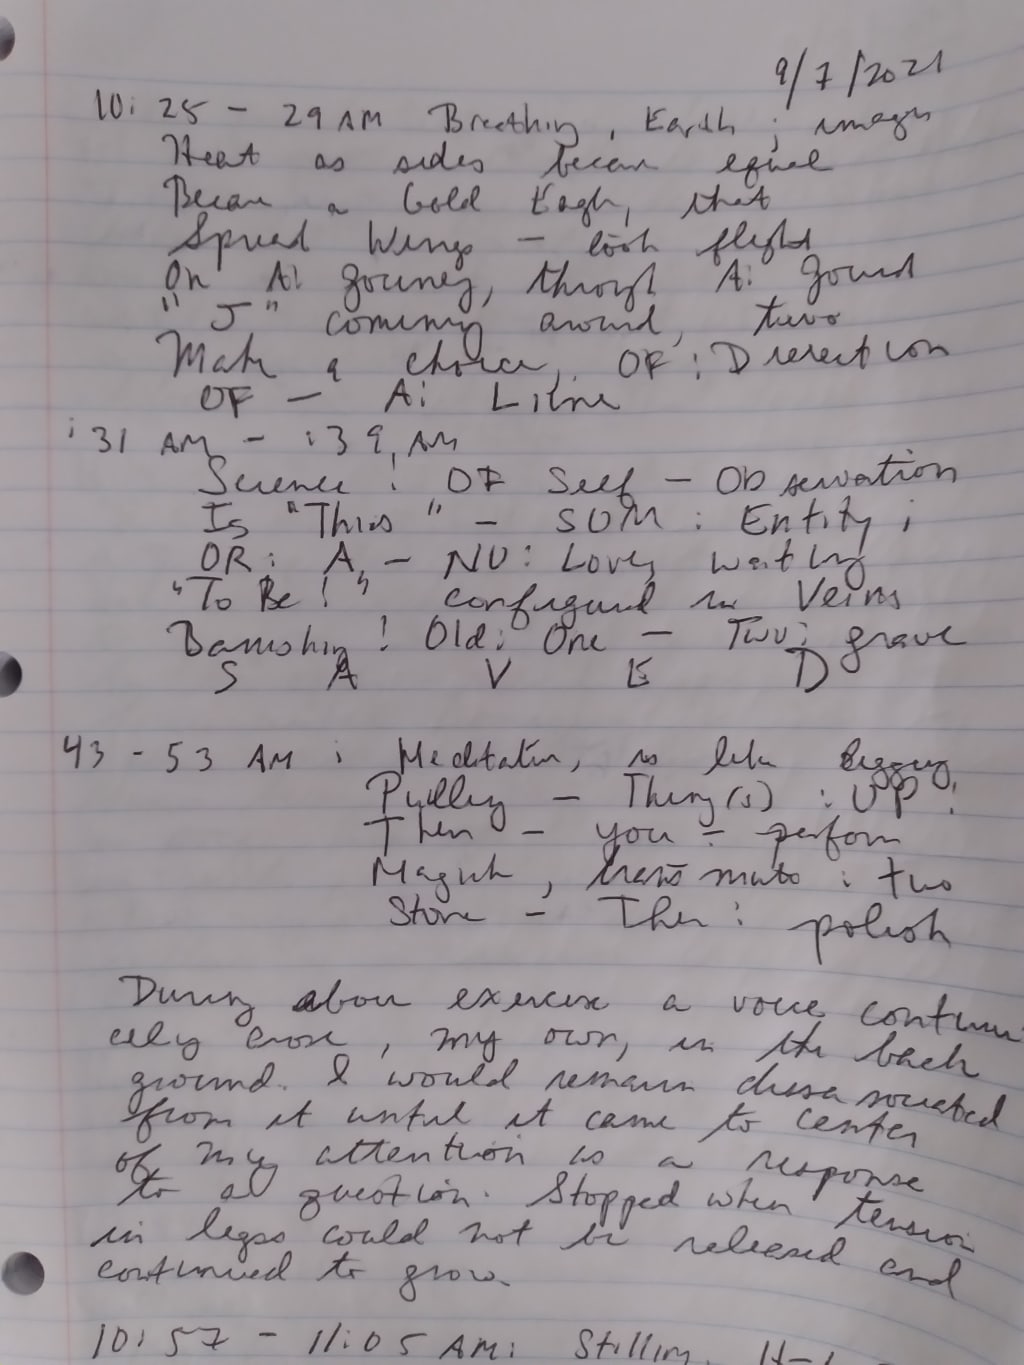 9/7/2021
10:25 - 29 AM Breathing, Earth; images
Heat as sides became equal
Became a Gold Eagle, that
Spread Wings - took flight
On A: journey, through A: found
"J" coming around, two
Make a choice, OF: Direection
OF - A: Lilne
:31 AM - :39, AM
Science! OF Self - Observation
Is "This" - SUM: Entity;
OR: A, - NU: Love, waiting
"To Be!" configured in Veins
Banishing! Old: One - Two: grave
S A V E D
43 - 53 AM: Meditation, is like digging
Pulling - Thing(s): UP!
Then - you - perform
Magick, transmute: two
Stone - Then: polish
During above exercise a voice continu
ally arose, my own, in the back
ground. I would remain dissasociated
from it until it came to center
of my attention as a response
to a question. Stopped when tension
in legs could not be released and
continued to grow.
10:57 - 11:05 AM: Stilling,